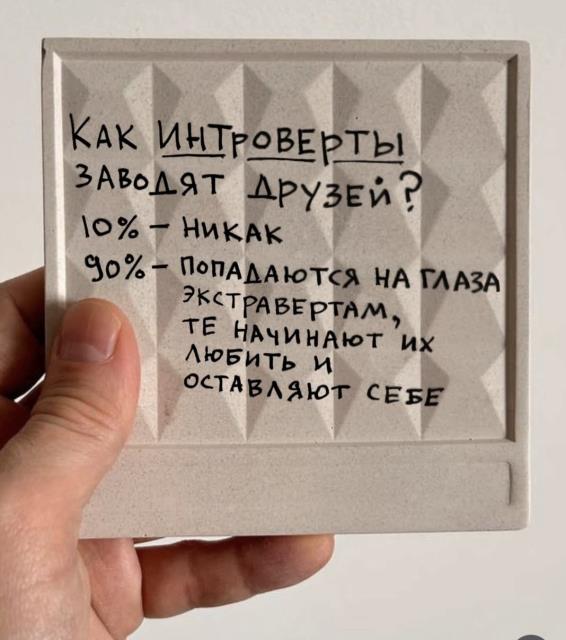 Как ИНТРОВЕРТЫ
ЗАВОДЯТ ДРУЗЕЙ?
10% – НИКАК
90% – ПОПАДАЮТСЯ НА ГЛАЗА
ЭКСТРАВЕРТАМ,
ТЕ НАЧИНАЮТ ИХ
ЛЮБИТЬ И
ОСТАВЛЯЮТ СЕБЕ